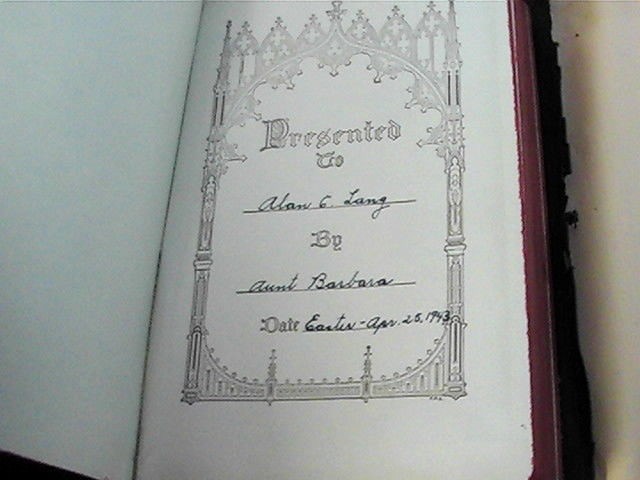 Presented
To
Alan C. Lang
By
Aunt Barbara
Date Easter - Apr. 25, 1943